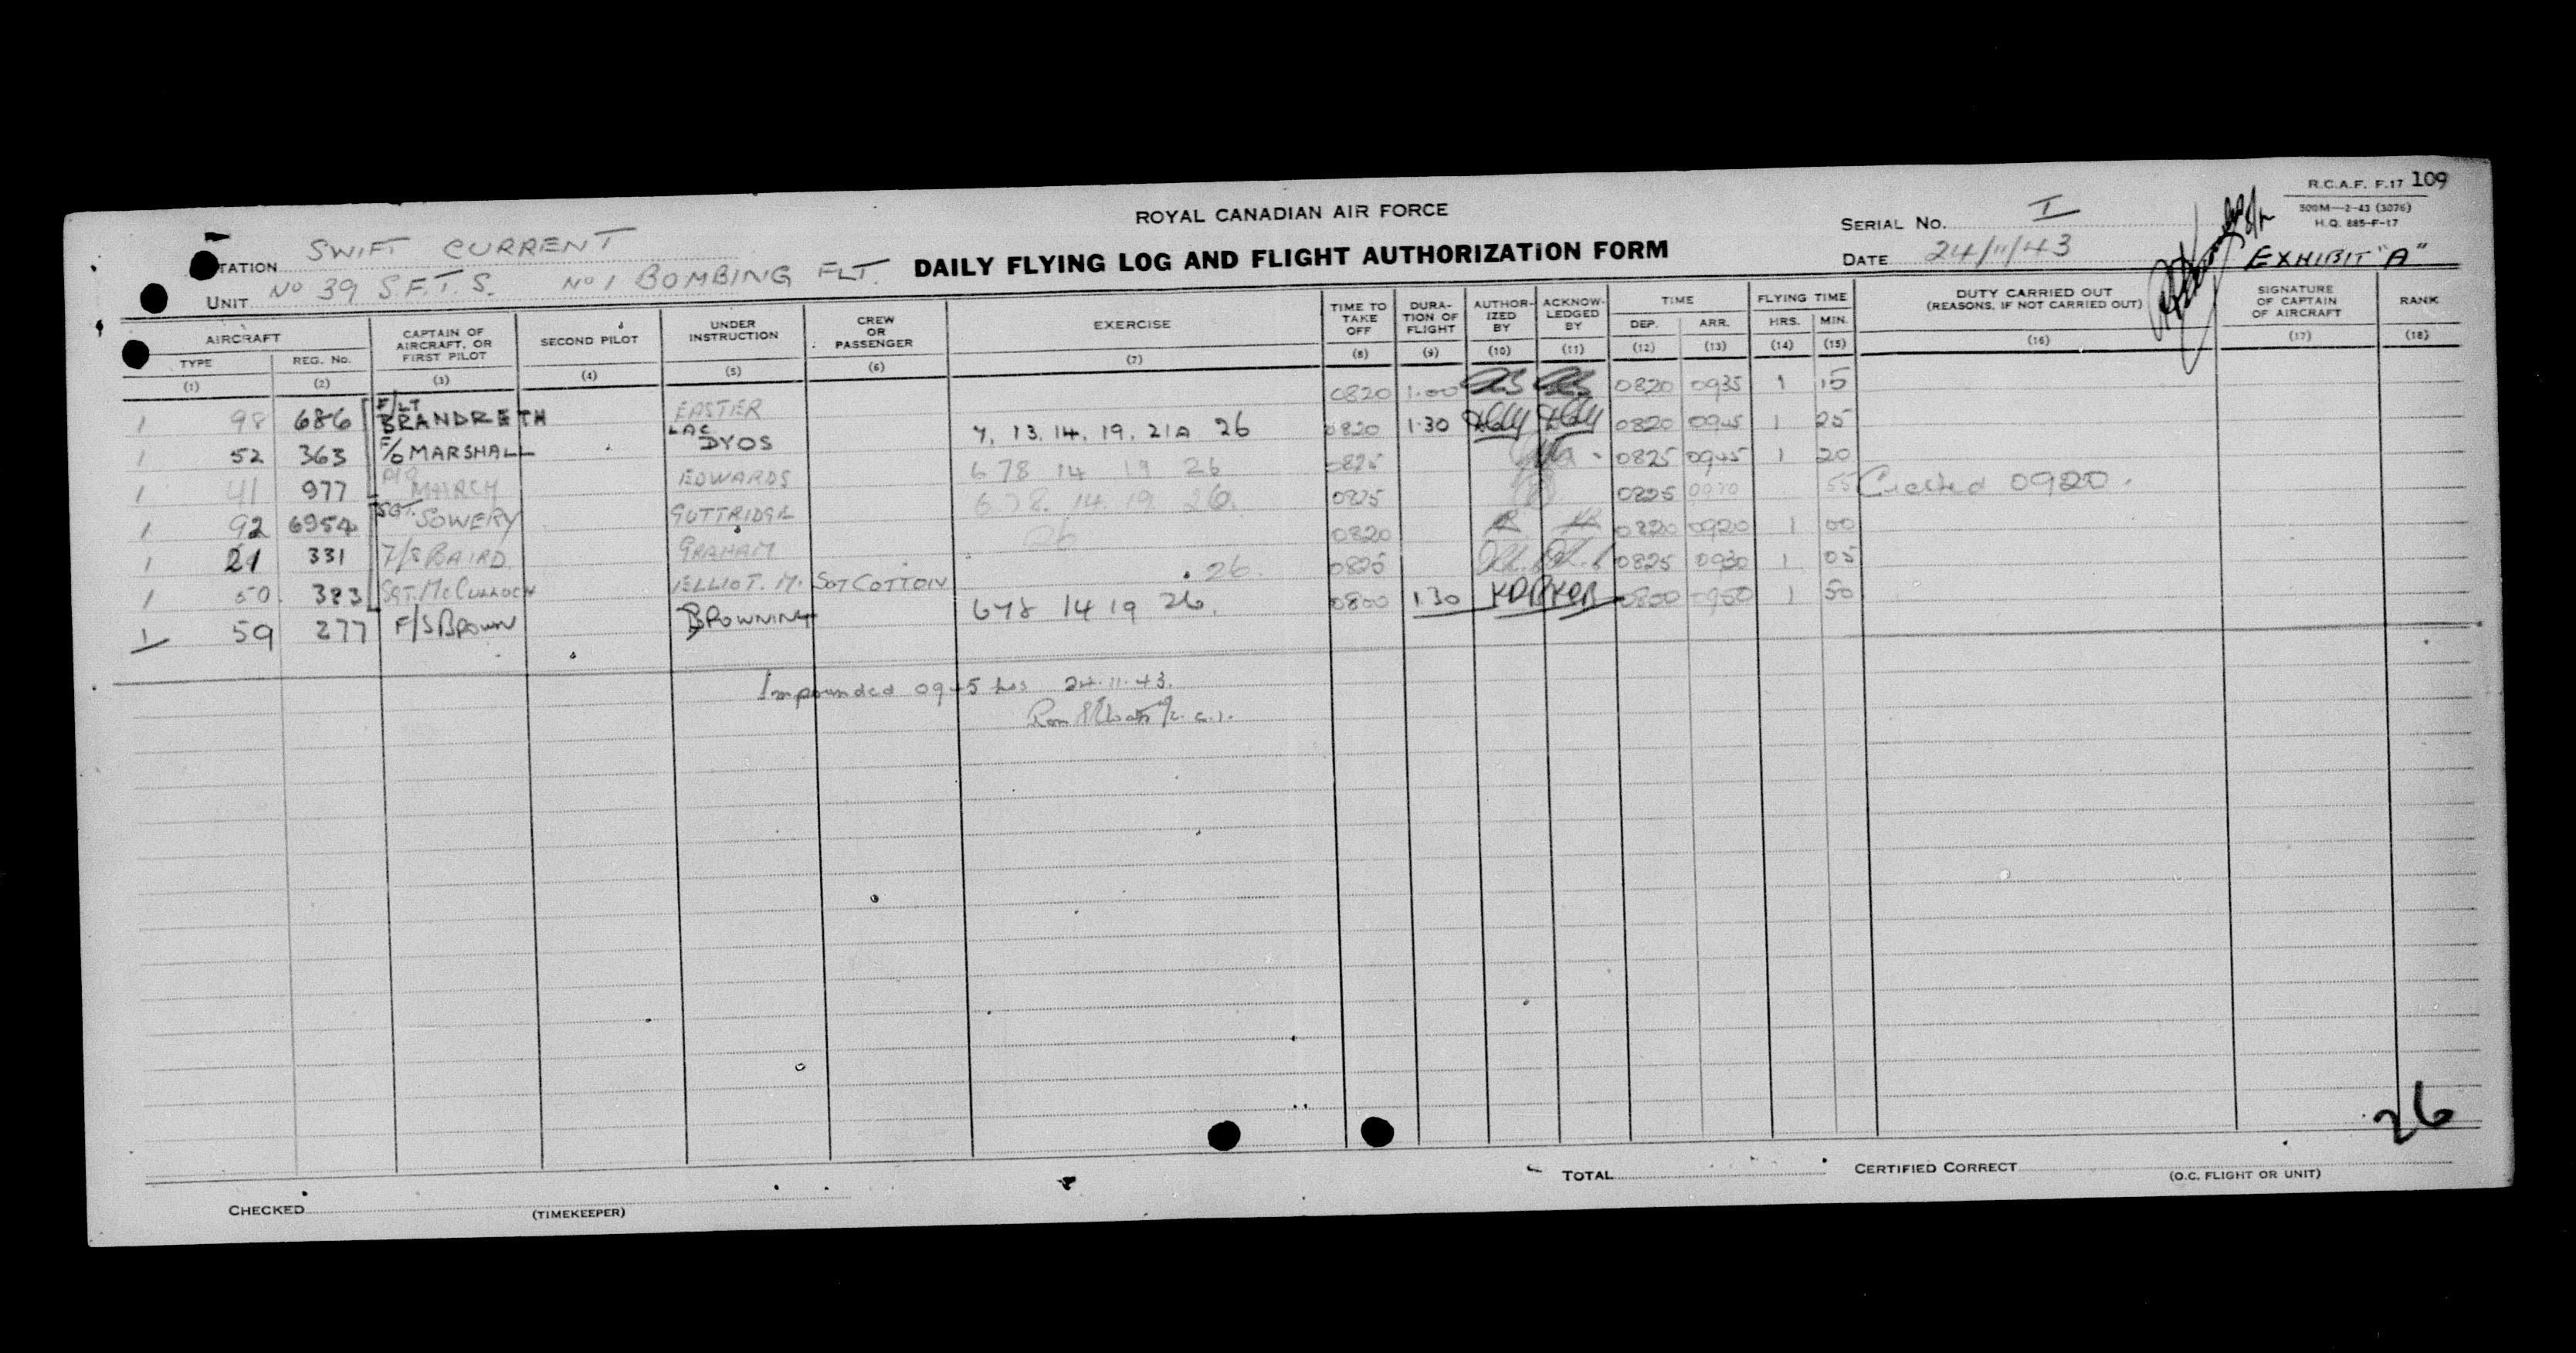 R.C.A.F. F.17 109
500M—2-43 (3076)
H.Q. 885-F-17
ROYAL CANADIAN AIR FORCE
DAILY FLYING LOG AND FLIGHT AUTHORIZATION FORM
SERIAL NO. I
DATE 24/11/43
EXHIBIT "A"
TATION SWIFT CURRENT
UNIT No 39 S.F.T.S. No 1 BOMBING FLT.
AIRCRAFT CAPTAIN OF AIRCRAFT, OR FIRST PILOT SECOND PILOT UNDER INSTRUCTION CREW OR PASSENGER EXERCISE TIME TO TAKE OFF DURA-TION OF FLIGHT AUTHOR-IZED BY ACKNOW-LEDGED BY TIME FLYING TIME DUTY CARRIED OUT (REASONS, IF NOT CARRIED OUT) SIGNATURE OF CAPTAIN OF AIRCRAFT RANK
TYPE REG. NO. DEP. ARR. HRS. MIN.
(1) (2) (3) (4) (5) (6) (7) (8) (9) (10) (11) (12) (13) (14) (15) (16) (17) (18)
1 98 686 F/LT BRANDRETH EASTER 0820 1.00 0820 0935 1 15
1 52 363 F/O MARSHALL LAC DYOS 7. 13. 14. 19. 21A 26 0820 1.30 0820 0945 1 25
1 41 977 MARCH EDWARDS 6 78 14 19 26 0825 0825 0945 1 20
1 92 6954 SGT. SOWERY GUTTRIDGE 6 78. 14. 19. 26. 0825 0825 0920 55 Crashed 0920.
1 21 331 F/S BAIRD. GRAHAM 26 0820 0820 0920 1 00
1 50. 383 SGT. McCULLOCH ELLIOT. M. SGT COTTON 26. 0825 0825 0930 1 05
1 59 277 F/S BROWN BROWNING 678 14 19 26. 0800 1.30 0800 0950 1 50
Impounded 0945 hrs 24.11.43.
26
TOTAL CERTIFIED CORRECT
(O.C. FLIGHT OR UNIT)
CHECKED
(TIMEKEEPER)